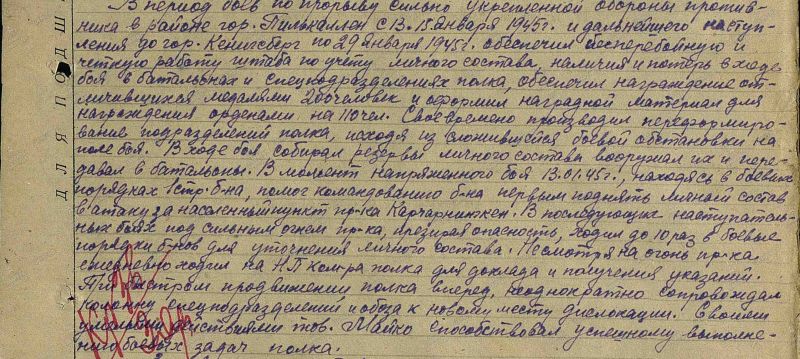 В период боев по прорыву сильно укрепленной обороны против-
ника в районе гор. Пилькаллен с 13-15 января 1945г. и дальнейшего наступ-
ления до гор. Кенигсберг по 29 января 1945г. обеспечил бесперебойную и
четкую работу штаба по учету личного состава, наличия и потерь в ходе
боя в батальонах и спецподразделениях полка, обеспечил награждение от-
личившихся медалями 200 человек и оформил наградной материал для
награждения орденами на 110 чел. Своевременно производил переформиро-
вание подразделений полка, исходя из сложившейся боевой обстановки на
поле боя. В ходе боя собирал резервы личного состава вооружал их и пере-
давал в батальоны. В момент напряженного боя 13.01.45г., находясь в боевых
порядках 1 стр. б-на, помог командованию б-на первым поднять личный состав
в атаку за населенный пункт пр-ка Карчарнинкен. В последующих наступатель-
ных боях под сильным огнем пр-ка, презирая опасность, ходил до 10 раз в боевые
порядки б-нов для уточнения личного состава. Несмотря на огонь пр-ка
ежедневно ходил на НП ком-ра полка для доклада и получения указаний.
При быстром продвижении полка вперед, неоднократно сопровождал
колонну спецподразделений и обоза к новому месту дислокации. Своими
умелыми действиями тов. Майко способствовал успешному выполне-
нию боевых задач полка.
ДЛЯ ПОДШ